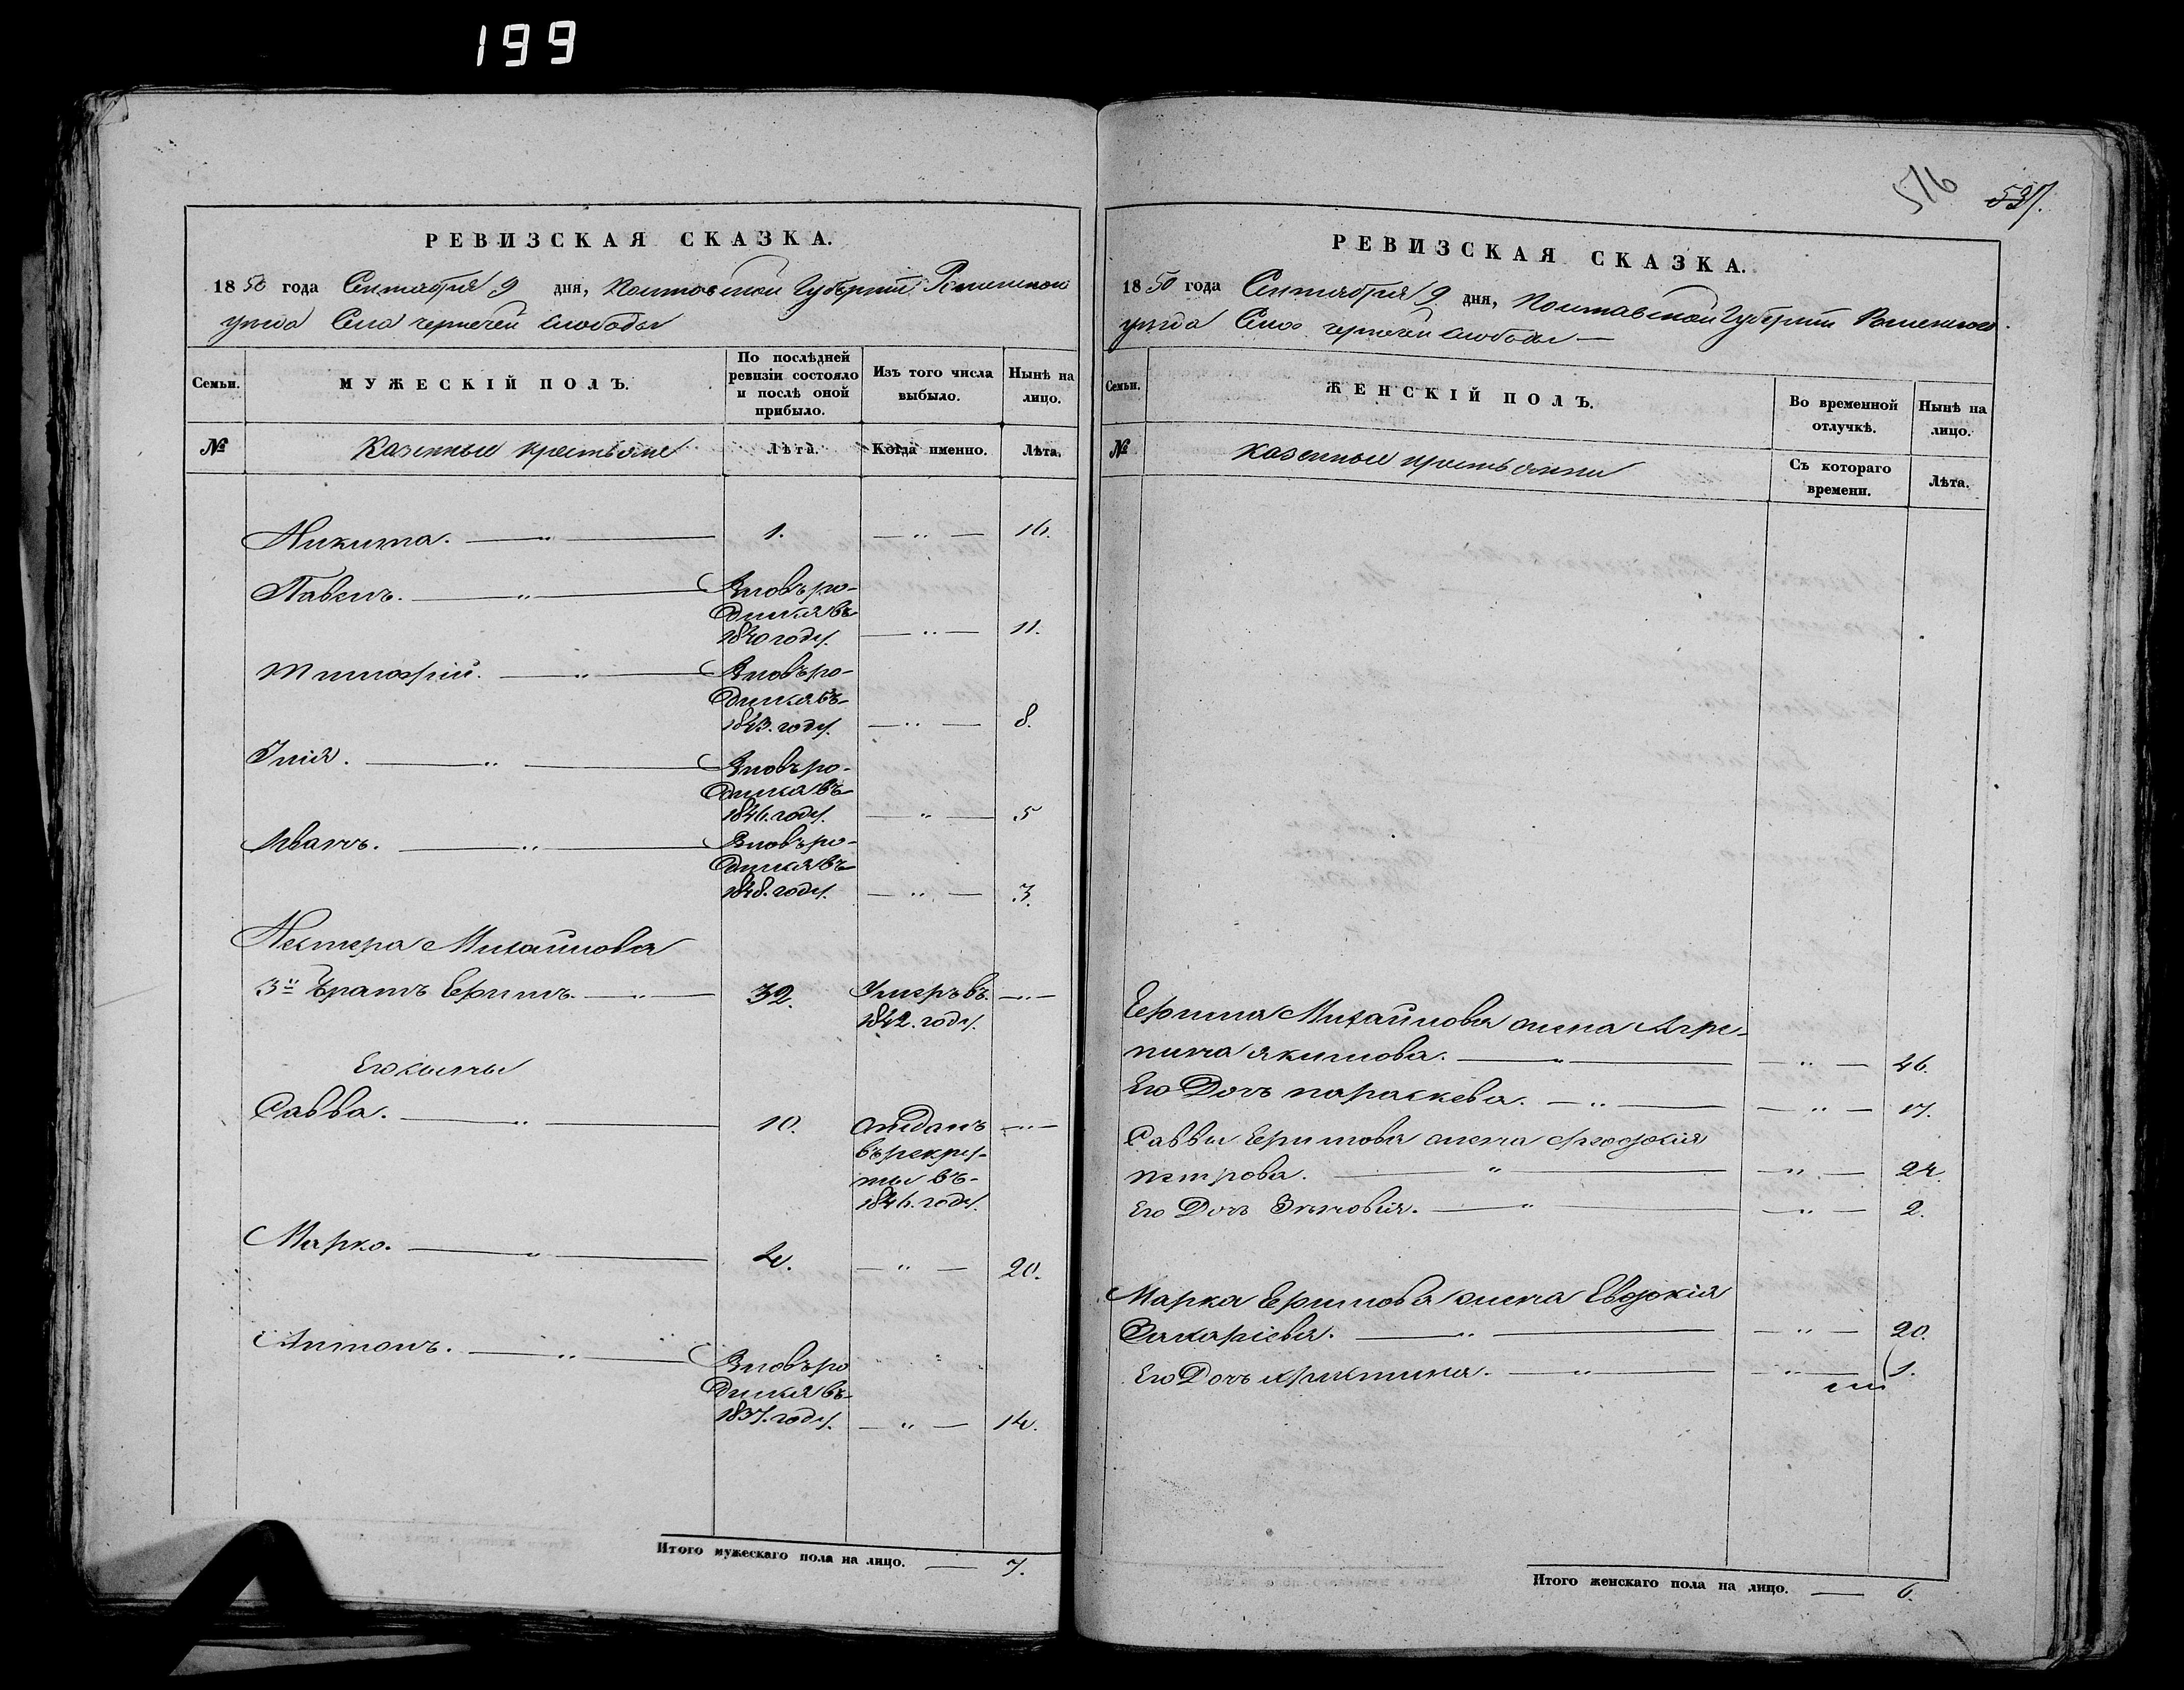 199
РЕВИЗСКАЯ СКАЗКА.
1850 года Сентября 9 дня, Полтавской Губерніи Роменского
уезда Села чернечей слободы
Семьи.
МУЖЕСКІЙ ПОЛЪ.
По послѣдней ревизіи состояло и послѣ оной прибыло.
Изъ того числа выбыло.
Нынѣ на лицо.
№
Казенные крестьяне
Лѣта.
Когда именно.
Лѣта.
Никита. — „ — 1. — „ — 16.
Павелъ. — „ — Вновь ро-
дился въ
1840 году. — „ — 11.
Тимофій. — „ — Вновь ро-
дился въ
1843. году. — „ — 8.
Илія. — „ — Вновь ро-
дился въ
1846. году. — „ — 5
Иванъ. — „ — Вновь ро-
дился въ
1848. году. — „ — 3.
Нестера Михайлова
3й братъ Ефимъ. — „ — 32. Умеръ въ — „ —
1842. году.
Его сыны
Савва. — „ — 10. отданъ — „ —
въ рекру-
ты въ
1846. году.
Марко. — „ — 4. — „ — 20.
Антонъ. — „ — Вновь ро
дился въ
1837. году. — „ — 14.
Итого мужескаго пола на лицо. — 7.
576
537.
РЕВИЗСКАЯ СКАЗКА.
1850 года Сентября 9 дня, Полтавской Губерніи Роменского
уезда Села чернечей слободы —
Семьи.
ЖЕНСКІЙ ПОЛЪ.
Во временной отлучкѣ.
Нынѣ на лицо.
№
Казенные крестьянки
Съ котораго времени.
Лѣта.
Ефима Михайлова жена Агре-
пина якимова. — „ — — „ — 46.
Его Дочь параскева. — „ — — „ — 17.
Саввы Ефимова жена Феодосія
петрова. — „ — — „ — 24.
Его Дочь Зѣновія. — „ — — „ — 2.
Марка Ефимова жена Евдокія
Захаріева. — „ — — „ — 20.
Его Дочь христина. — „ — — „ — 1.
Итого женскаго пола на лицо. — 6.